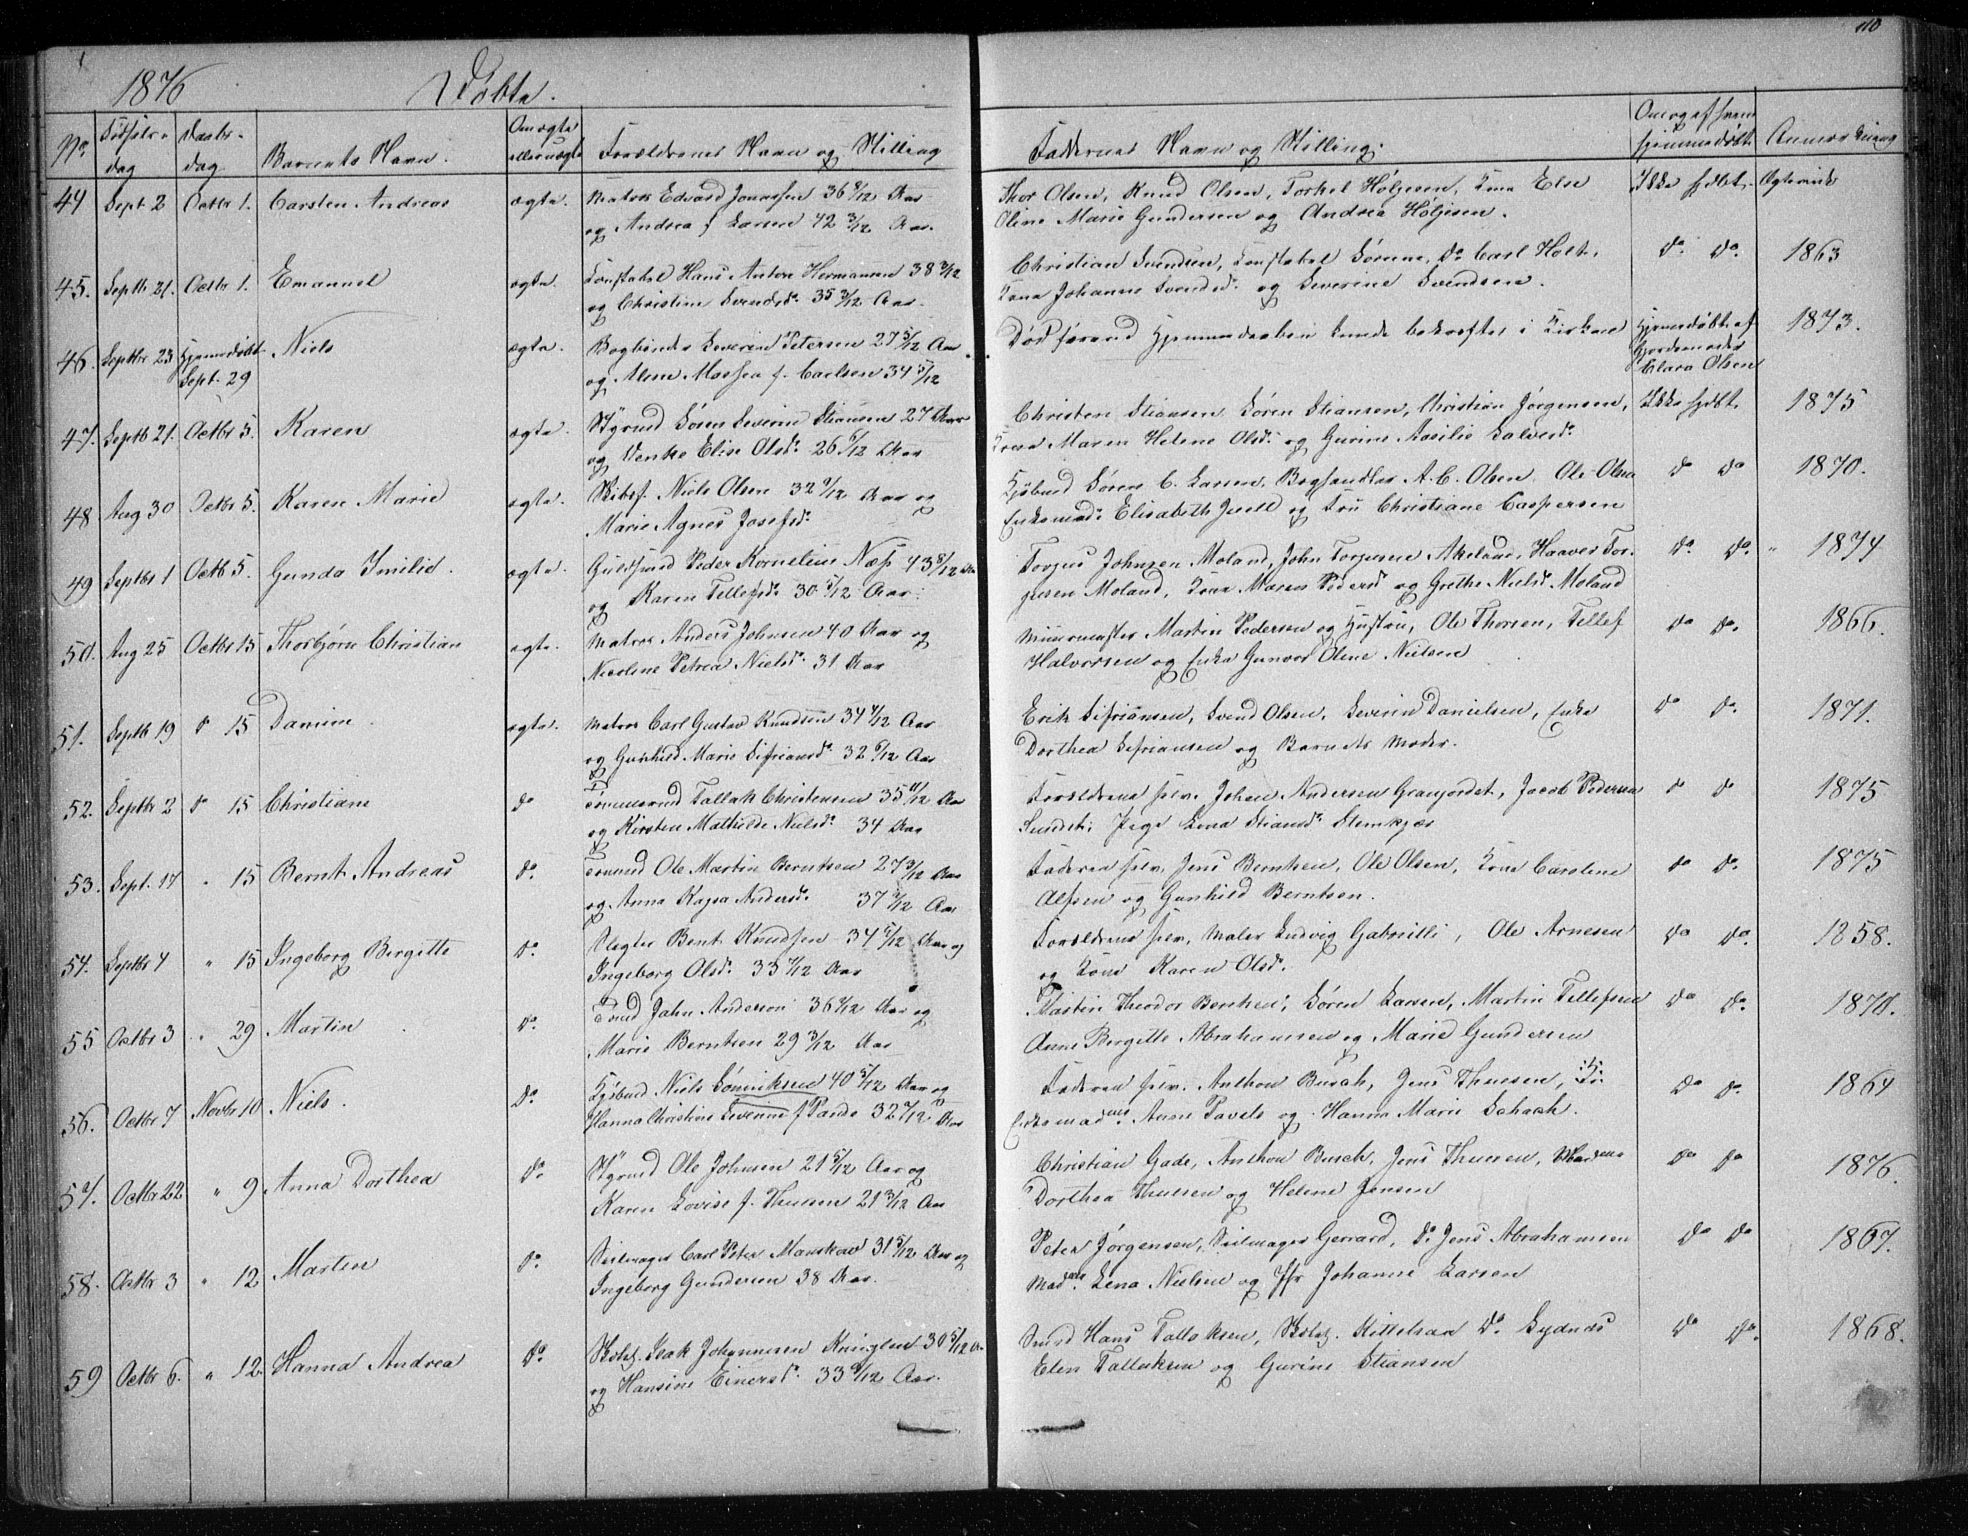 110
1876 Döbte.
No. Fødsels- dag Daabs- dag Barnets Navn. Om ægte eller uægte Forældrenes Navn og Stilling Faddernes Navn og Stilling. Om og af hvem hjemmedøbt Anmærkning
44 Sept. 2 Octbr 1. Carsten Andreas ægte. Matros Edvard 36 9/12 Aar Thor Olsen, Knud Olsen, Torkel Höljesen, Kone Else Ikke hjdbt.
og Andrea f Larsen 42 3/12 Aar. Oline Marie Gundersen og Andrea Höljesen.
45. Septb 21. Octbr 1. Emanuel ægte. Konstabel Hans Anton Hermansen 38 3/12 Christian Svendsen, Konstabel Sörene, Do Carl Holt, Do Do 1863
og Christine Svendsdr. 35 3/12 Aar. Kone Johanne Svendsdr. og Severine Svendsen.
46. Septbr 23 Hjemmedöbt Niels ægte. Bogbinder Severin Petersen 27 5/12 Aar Död förend Hjemmedaaben kunde bekræftes i Kirken Hjemmedöbt af 1873.
Sept. 29 og Aline f. Carlsen 34 5/12 Gjordemoder
Clara Olsen
47. Septb 21. Octbr 5. Karen ægte. Styrmd Sören Severin Stiansen 27 Aar Christen Stiansen Sören Stiansen, Christian Jörgensen, Ikke hjdbt. 1875
og Venke Elise Olsdr. 26 5/12 Aar Kone Maren Helene Olsdr. og Gurine Aasilie Salvesdr.
48 Aug 30 Octbr 5. Karen Marie ægte. Skibsf. Niels Olsen 32 9/12 Aar og Kjöbmd Sören C. Larsen, Boghandler A. C. Olsen Ole Olsen Do Do 1870.
Marie Agnes Josefsdr. Enkemad. Elisabeth Juell og Fru Christiane Caspersen
49 Septbr 1 Octb 5. Gunda Emilie. ægte. Guldsmd Peder Kornelius Næs 43 8/12 Aar Torjus Johnsen Moland, John Torjusen Haaver Tor- Do. Do. 1874
og Karen Tellefsdr. 30 5/12 Aar. jusen Moland, Kone Maren Pedersdr og Grethe Nielsdr. Moland
50. Aug 25 Octbr 15 Thorbjörn Christian ægte. Matros Anders Johnsen 40 Aar og Muurmester Martin Pedersen og Hustru, Ole Thorsen, Tellef Do Do. 1866.
Nicoline Petrea Nielsdr. 31 Aar Halvorsen og Enke Gunvor Oline Nielsen
51. Septb 19 Do 15 Damine ægte. Matros Carl Gustav Knudsen 34 4/12 Aar Erik Sifriansen, Svend Olsen, Severin Danielsen, Enke Do Do. 1871.
og Gunhild Marie Sifriansdr 32 6/12 Aar Dorthea Sifriansen og Barnets Moder.
52. Septbr 2 Do 15 Christiane Do Tømmermd Tallak Christensen 35 11/12 Aar Forældrene selv. Johan Andersen Granjordet, Jacob Pedersen Do Do 1875
og Kirsten Mathilde Nielsdr. 34 Aar Sundet; Pige Lena Stiansdr.
53. Sept. 17 " 15 Bernt Andreas Do. Tømmd Ole Martin Berntsen 27 3/12 Aar Faderen selv. Jens Berntsen, Ole Olsen, Kone Caroline Do Do. 1875
og Anna Kajsa Andersdr. 37 Aar Alfsen og Gunhild Berntsen.
54. Septbr 4 " 15 Ingeborg Bergitte Do. Slagter Bent Knudsen 34 5/12 Aar og Forældrene selv, Maler Ludvig Gabrielli, Ole Arnesen Do Do. 1858.
Ingeborg Olsdr. 33 7/12 Aar og Kone Karen Olsdr.
55 Octbr 3 " 29 Martin Do. Tømd John Anderson 36 6/12 Aar og Martin Theodor Berntsen; Sören Larsen, Martin Tellefsen Do Do. 1870.
Marie Berntsen 29 3/12 Aar Anne Bergitte Abrahamsen og Marie Gundersen
56. Octbr 7 Novbr 10 Niels. Do. Kjöbmd Niels Sönniksen 40 5/12 Aar og Faderen selv. Anthon Busch, Jens Thuesen, Do Do. 1864
Hanna Christine Severine f Pande 32 7/12 Aar Enkemad. Anne Pavels og Hanna Marie Schach.
57. Octbr 22 " 9 Anna Dorthea Do. Styrmd Ole Johnsen 21 5/12 Aar og Christian Gade, Anthon Busch, Jens Thuesen, Mad Do Do 1876.
Karen Lovise f. Thuesen 21 3/12 Aar Dorthea Thuesen og Helene Jensen
58. Octbr 3 " 12 Marten Do. Seilmager Carl Peter Manskov 31 5/12 Aar og Peter Jörgensen, Seilmager Gerrard, Do. Jens Abrahamsen Do Do 1867.
Ingeborg Gundersen 38 Aar. Mad. Lena Nielsen og Jfr Johanne Larsen
59 Octbr 6. " 12. Hanna Andrea Do. Isak Johannesen 30 5/12 Aar Smed Hans Tallaksen, Kittelsen Do. Lydnæs Do Do. 1868.
og Hansine Einersdr. 33 Aar. Elen Tallaksen og Gurine Stiansen